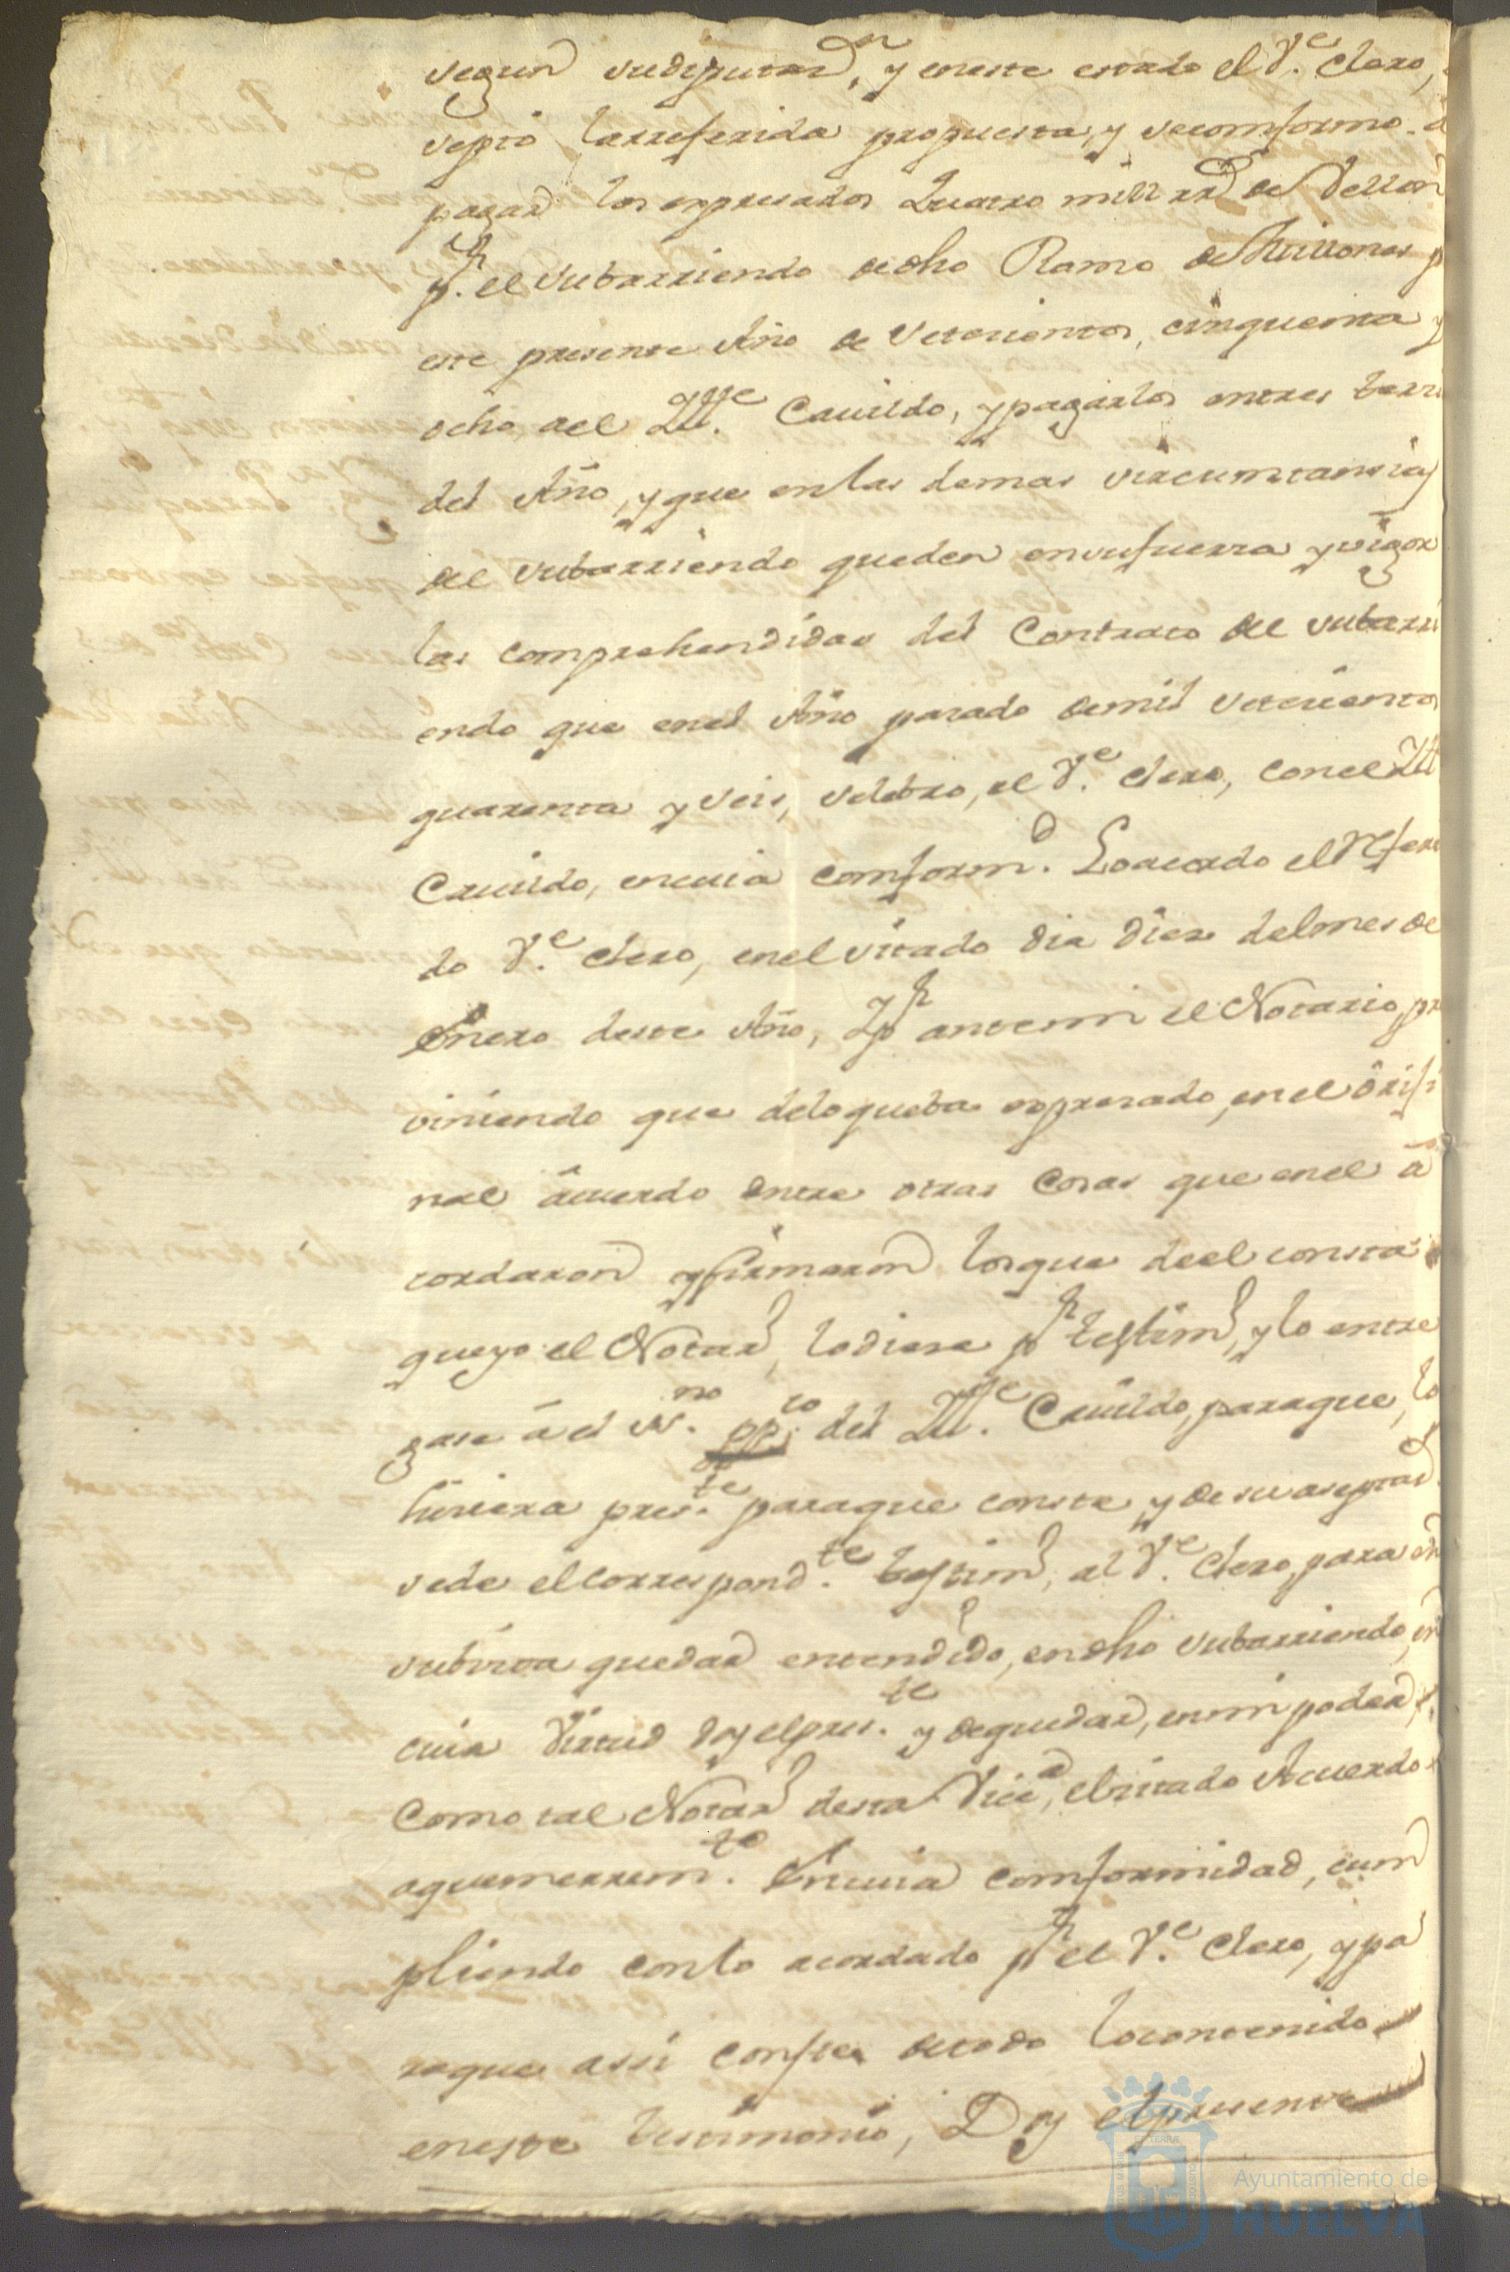 segun su diputaz.n y eneste estado el V.e Clero,
septó la rreferida propuesta, y se comformo a
pagar los expresados Quatro mill rr.s de Vellon
p.r el subarriendo de dho Ramo de Millones p
este presente Año de setecientos, cinquenta y
ocho, al Ill.e Cavildo, y pagarlos entres terzi
del Año, y que en las demas sircumstansias
del subarriendo queden en su fuerza y vigor
las comprehendidas del Contrato del subarri
endo que en el Año pasado de mil setecientos
quarenta y seis, selebro, el V.e Clero, con el Ill
Cavildo, en cuia comform.d Lo acordo el Refer
do V.e Clero, en el sitado dia diez del mes de
Enero deste Año, Y p.r ante mi el Notario, pr
viniendo que de lo que ba expresado, en el orixi
nal acuerdo entre otras cosas que en el a
cordaron y firmaron los que de el consta
que yo el Notar.o lo diese p.r testim.o, y lo entre
gase a el es.no pp.co del Ill.e Cavildo, para que, lo
hiciera pres.te para que conste, y de su aseptaz.n
se de el correspond.te testim.o, al V.e Clero, para en
su vista quedar entendido, en dho subarriendo, en
cuia virtud doy el pres.te y de quedar, en mi poder,
como tal Notar.o desta Vic.a, el sitado Acuerdo
a que me rrem.to En cuia comformidad, cum
pliendo con lo acordado p.r el V.e Clero, y pa
ra que assi conste de todo lo convenido
en este testimonio, Doy el presente
Ayuntamiento de
HUELVA